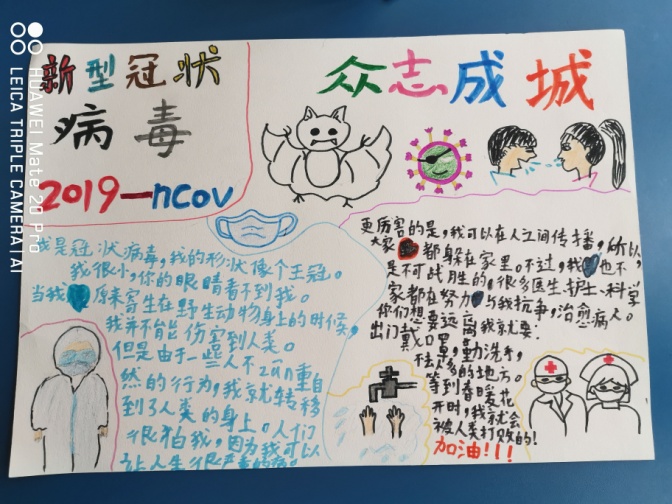 新型冠状
病毒
2019—nCoV
众志成城
我是冠状病毒，我的形状像个王冠。
我很小，你的眼睛看不到我。
当我原来寄生在野生动物身上的时候，
我并不能伤害到人类。
但是由于一些人不zūn重自
然的行为，我就转移
到了人类的身上。人们
很怕我，因为我可以
让人生很严重的病。
更厉害的是，我可以在人之间传播，所以，
大家都躲在家里。不过，我也不
是不可战胜的。很多医生、护士、科学
家都在努力与我抗争，治愈病人。
你们想要远离我就要：
出门戴口罩，勤洗手，
不去人多的地方。
等到春暖花
开时，我就会
被人类打败的！
加油！！！
HUAWEI Mate 20 Pro
LEICA TRIPLE CAMERA | AI